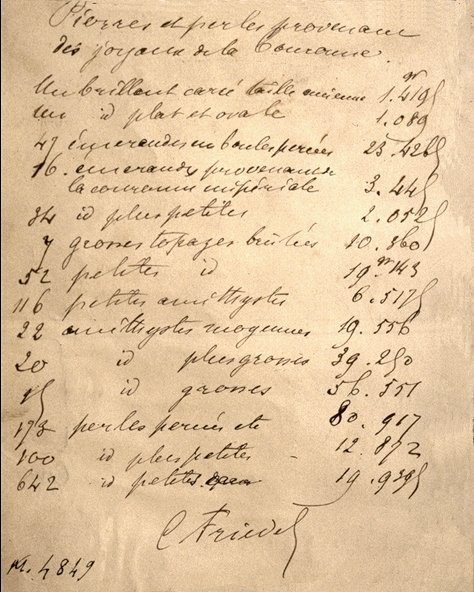 Pierres et perles provenant
des joyaux de la Couronne.
Un brillant carré taille ancienne 1.gr419
un id plat et ovale 1.089
47 émeraudes en boules percées 25.426
16. émeraudes provenant de
la couronne impériale 3.445
34 id plus petites 2.052
7 grosses topazes brûlées 10.360
52 petites id 19.gr143
116 petites améthystes 6.517
22 améthystes moyennes 19.556
20 id plus grosses 39.250
15 id grosses 56.551
173 perles percées etc 80.917
100 id plus petites - 12.872
642 id petites 19.939
C Friedel
M. 4849